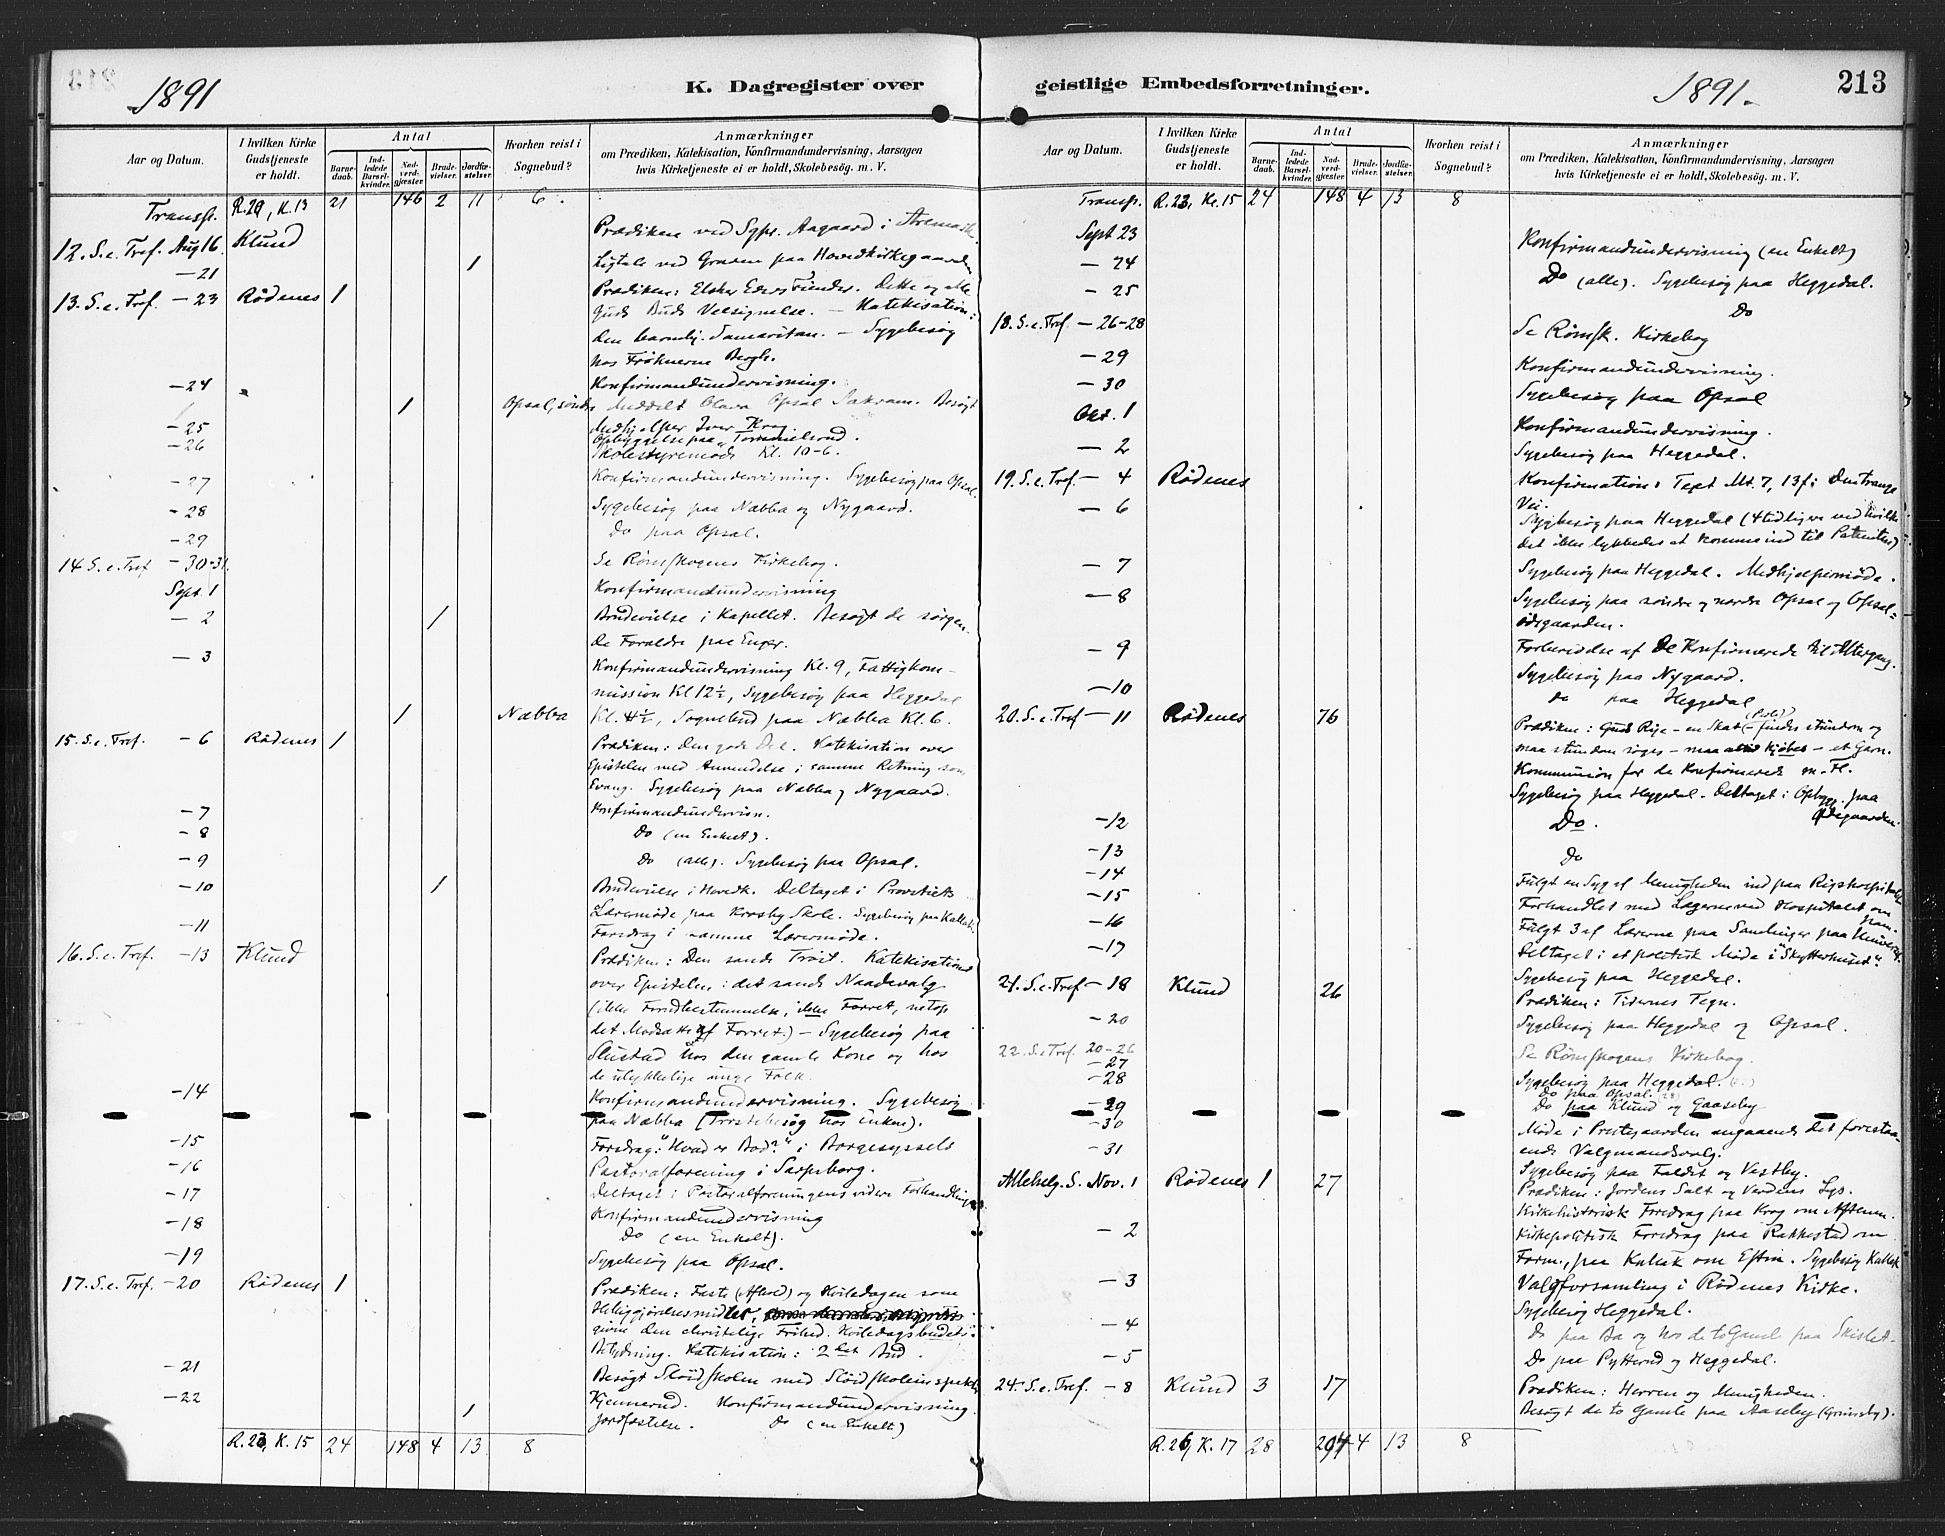 1891
K. Dagregister over
Aar og Datum.
I hvilken Kirke Gudstjeneste er holdt.
Antal
Barnedaab.
Indledede Barselkvinder.
Nadverdgjæster
Brudevielser.
Jordfæstelser.
Hvorhen reist i Sognebud?
Anmærkninger
om Prædiken, Katekisation, Konfirmandundervisning, Aarsagen
hvis Kirketjeneste ei er holdt, Skolebesøg. m. V.
Transp. R.20, K.13 21 146 2 11 6.
12. S. e. Tref. Aug 16. Klund Prædiken ved Sgpr. Aagaard i Aremark.
— 21 1 Ligtale ved Graven paa Hovedkirkegaarden
13. S. e. Tref. — 23 Rødenes 1 Prædiken: Elsker Eders Fiender. Dette og alle
Guds Buds Velsignelse. — Katekisation:
den barmhj. Samaritan. — Sygebesøg
hos Frøknerne Bergh.
— 24 Konfirmandundervisning.
1 Opsal, søndre Meddelt Olava Opsal Sakram. Besøgt
— 25 Medhjelper Iver Krog.
Opbyggelse paa Tommelsrud.
— 26 Skolestyremøde Kl. 10-6.
— 27 Konfirmandundervisning. Sygebesøg paa Opsal.
— 28 Sygebesøg paa Næbba og Nygaard.
— 29 Do paa Opsal.
14 S. e. Tref — 30-31. Se Rømskogens Kirkebog.
Sept. 1 Konfirmandundervisning
— 2 1 Brudevielse i Kapellet. Besøgt de sørgen-
de Forældre paa Enger.
— 3 Konfirmandundervisning Kl. 9, Fattigkom-
mission Kl 12½, Sygebesøg paa Heggedal
1 Næbba Kl. 4½, Sognebud paa Næbba Kl. 6.
15. S. e. Tref. — 6 Rødenes 1 Prædiken: Den gode Del. Katekisation over
Epistelen med Anvendelse i samme Retning som
Evang. Sygebesøg paa Næbba og Nygaard.
— 7 Konfirmandundervisn.
— 8 Do (en Enkelt).
— 9 Do (alle). Sygebesøg paa Opsal.
— 10 1 Brudevielse i Hovedk. Deltaget i Provstiets
Lærermøde paa Krosby Skole. Sygebesøg paa
— 11 Foredrag i samme Lærermøde.
16. S. e. Tref. — 13 Klund Prædiken: Den sande Trøst. Katekisation
over Epistelen: det sande Naadevalg
(ikke Forudbestemmelse, ikke Forret, netop
det Modsatte af Forret.) — Sygebesøg paa
Slustad hos den gamle Kone og hos
de ulykkelige unge Folk.
— 14 Konfirmandundervisning. Sygebesøg
paa Næbba (Trøstebesøg hos Enken).
— 15 Foredrag: "Hvad er Bod?" i Borgesyssels
— 16 Pastoralforening i Sarpsborg.
— 17 Deltaget i Pastoralforeningens videre Forhandlinger
— 18 Konfirmandundervisning
Do (en Enkelt).
— 19 Sygebesøg paa Opsal.
17. S. e. Tref. — 20 Rødenes 1 Prædiken: Faste (Afhold) og Hviledagen som
Helliggjørelsesmidler,
givne den christelige Frihed. Hviledagsbudets
Betydning. Katekisation: 2det Bud.
— 21 Besøgt Sløidskolen med Sløidskoleinspektør
— 22 Kjennerud. Konfirmandundervisning.
1 Jordfæstelse. Do (en Enkelt)
R.23, K. 15 24 148 4 13 8
geistlige Embedsforretninger.
1891.
213
Aar og Datum.
I hvilken Kirke Gudstjeneste er holdt.
Antal
Barnedaab.
Indledede Barselkvinder.
Nadverdgjæster
Brudevielser.
Jordfæstelser.
Hvorhen reist i Sognebud?
Anmærkninger
om Prædiken, Katekisation, Konfirmandundervisning, Aarsagen
hvis Kirketjeneste ei er holdt, Skolebesøg. m. V.
Transp. R.23, K. 15 24 148 4 13 8
Sept 23 Konfirmandundervisning (en Enkelt)
— 24 Do (alle). Sygebesøg paa Heggedal.
— 25 Do
18. S. e. Tref. — 26-28 Se Rømsk. Kirkebog
— 29 Konfirmandundervisning.
— 30 Sygebesøg paa Opsal
Okt. 1 Konfirmandundervisning.
— 2 Sygebesøg paa Heggedal.
19. S. e. Tref. — 4 Rødenes Konfirmation: Text Mt. 7, 13f: Den trange
Vei.
— 6 Sygebesøg paa Heggedal (4 tidligere ved hvilke
det ikke lykkedes at komme ind til Patienten)
— 7 Sygebesøg paa Heggedal. Medhjelpermøde.
— 8 Sygebesøg paa søndre og nordre Opsal og Opsal-
ødegaarden.
— 9 Forberedelse af de Konfirmerede til Altergang.
Sygebesøg paa Nygaard.
— 10 Do paa Heggedal
20. S. e. Tref — 11 Rødenes 76 Prædiken: Guds Rige — en Skat — (Perle) findes stundom og
maa stundom søges — maa altid kjøbes — et Garn.
Kommunion for de Konfirmerede m. Fl.
Sygebesøg paa Heggedal. Deltaget i Opbygg. paa
Ødegaarden.
— 12 Do.
— 13 Do
— 14 Fulgt en Syg af Menigheden ind paa Rigshospitalet
— 15 Forhandlet med Lægerne ved Hospitalet om
ham.
— 16 Fulgt 3 af Lærerne paa Samlinger paa Universit.
— 17 Deltaget i et politisk Møde i "Skytterhuset".
Sygebesøg paa Heggedal.
21. S. e. Tref — 18 Klund 26 Prædiken: Tidernes Tegn.
— 20 Sygebesøg paa Heggedal og Opsal.
22. S. e Tref. 20-26 Se Rømskogens Kirkebog.
— 27 Sygebesøg paa Heggedal.
— 28 Do paa Opsal. (28)
— 29 Do paa Klund og Gaaseby
— 30 Møde i Prestegaarden angaaende det forestaa-
— 31 ende Valgmandsvalg.
Sygebesøg paa Faldet og Vestby.
Allehelg. S. Nov. 1 Rødenes 1 27 Prædiken: Jordens Salt og Verdens Lys.
Kirkehistorisk Foredrag paa Krog om Aftenen.
— 2 Kirkepolitisk Foredrag paa Rakkestad om
Form., paa om Eftm. Sygebesøg
— 3 Valgforsamling i Rødenes Kirke.
Sygebesøg Heggedal.
— 4 Do paa Ba og hos de to Gamle paa
— 5 Do paa Pytterud og Heggedal.
24. S. e. Tref. — 8 Klund 3 17 Prædiken: Herren og Menigheden.
Besøgt de to Gamle paa Aaseby (Grimsby).
R.26, K. 17 28 294 4 13 8